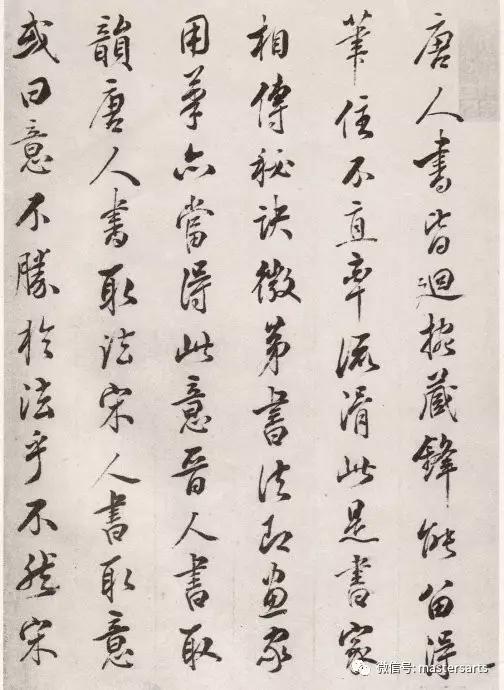 唐人書皆迴捥藏鋒能留得
筆住不直率流滑此是書家
相傳秘訣微第書法即畫家
用筆亦當得此意晉人書取
韻唐人書取法宋人書取意
或曰意不勝於法乎不然宋
微信号: mastersarts